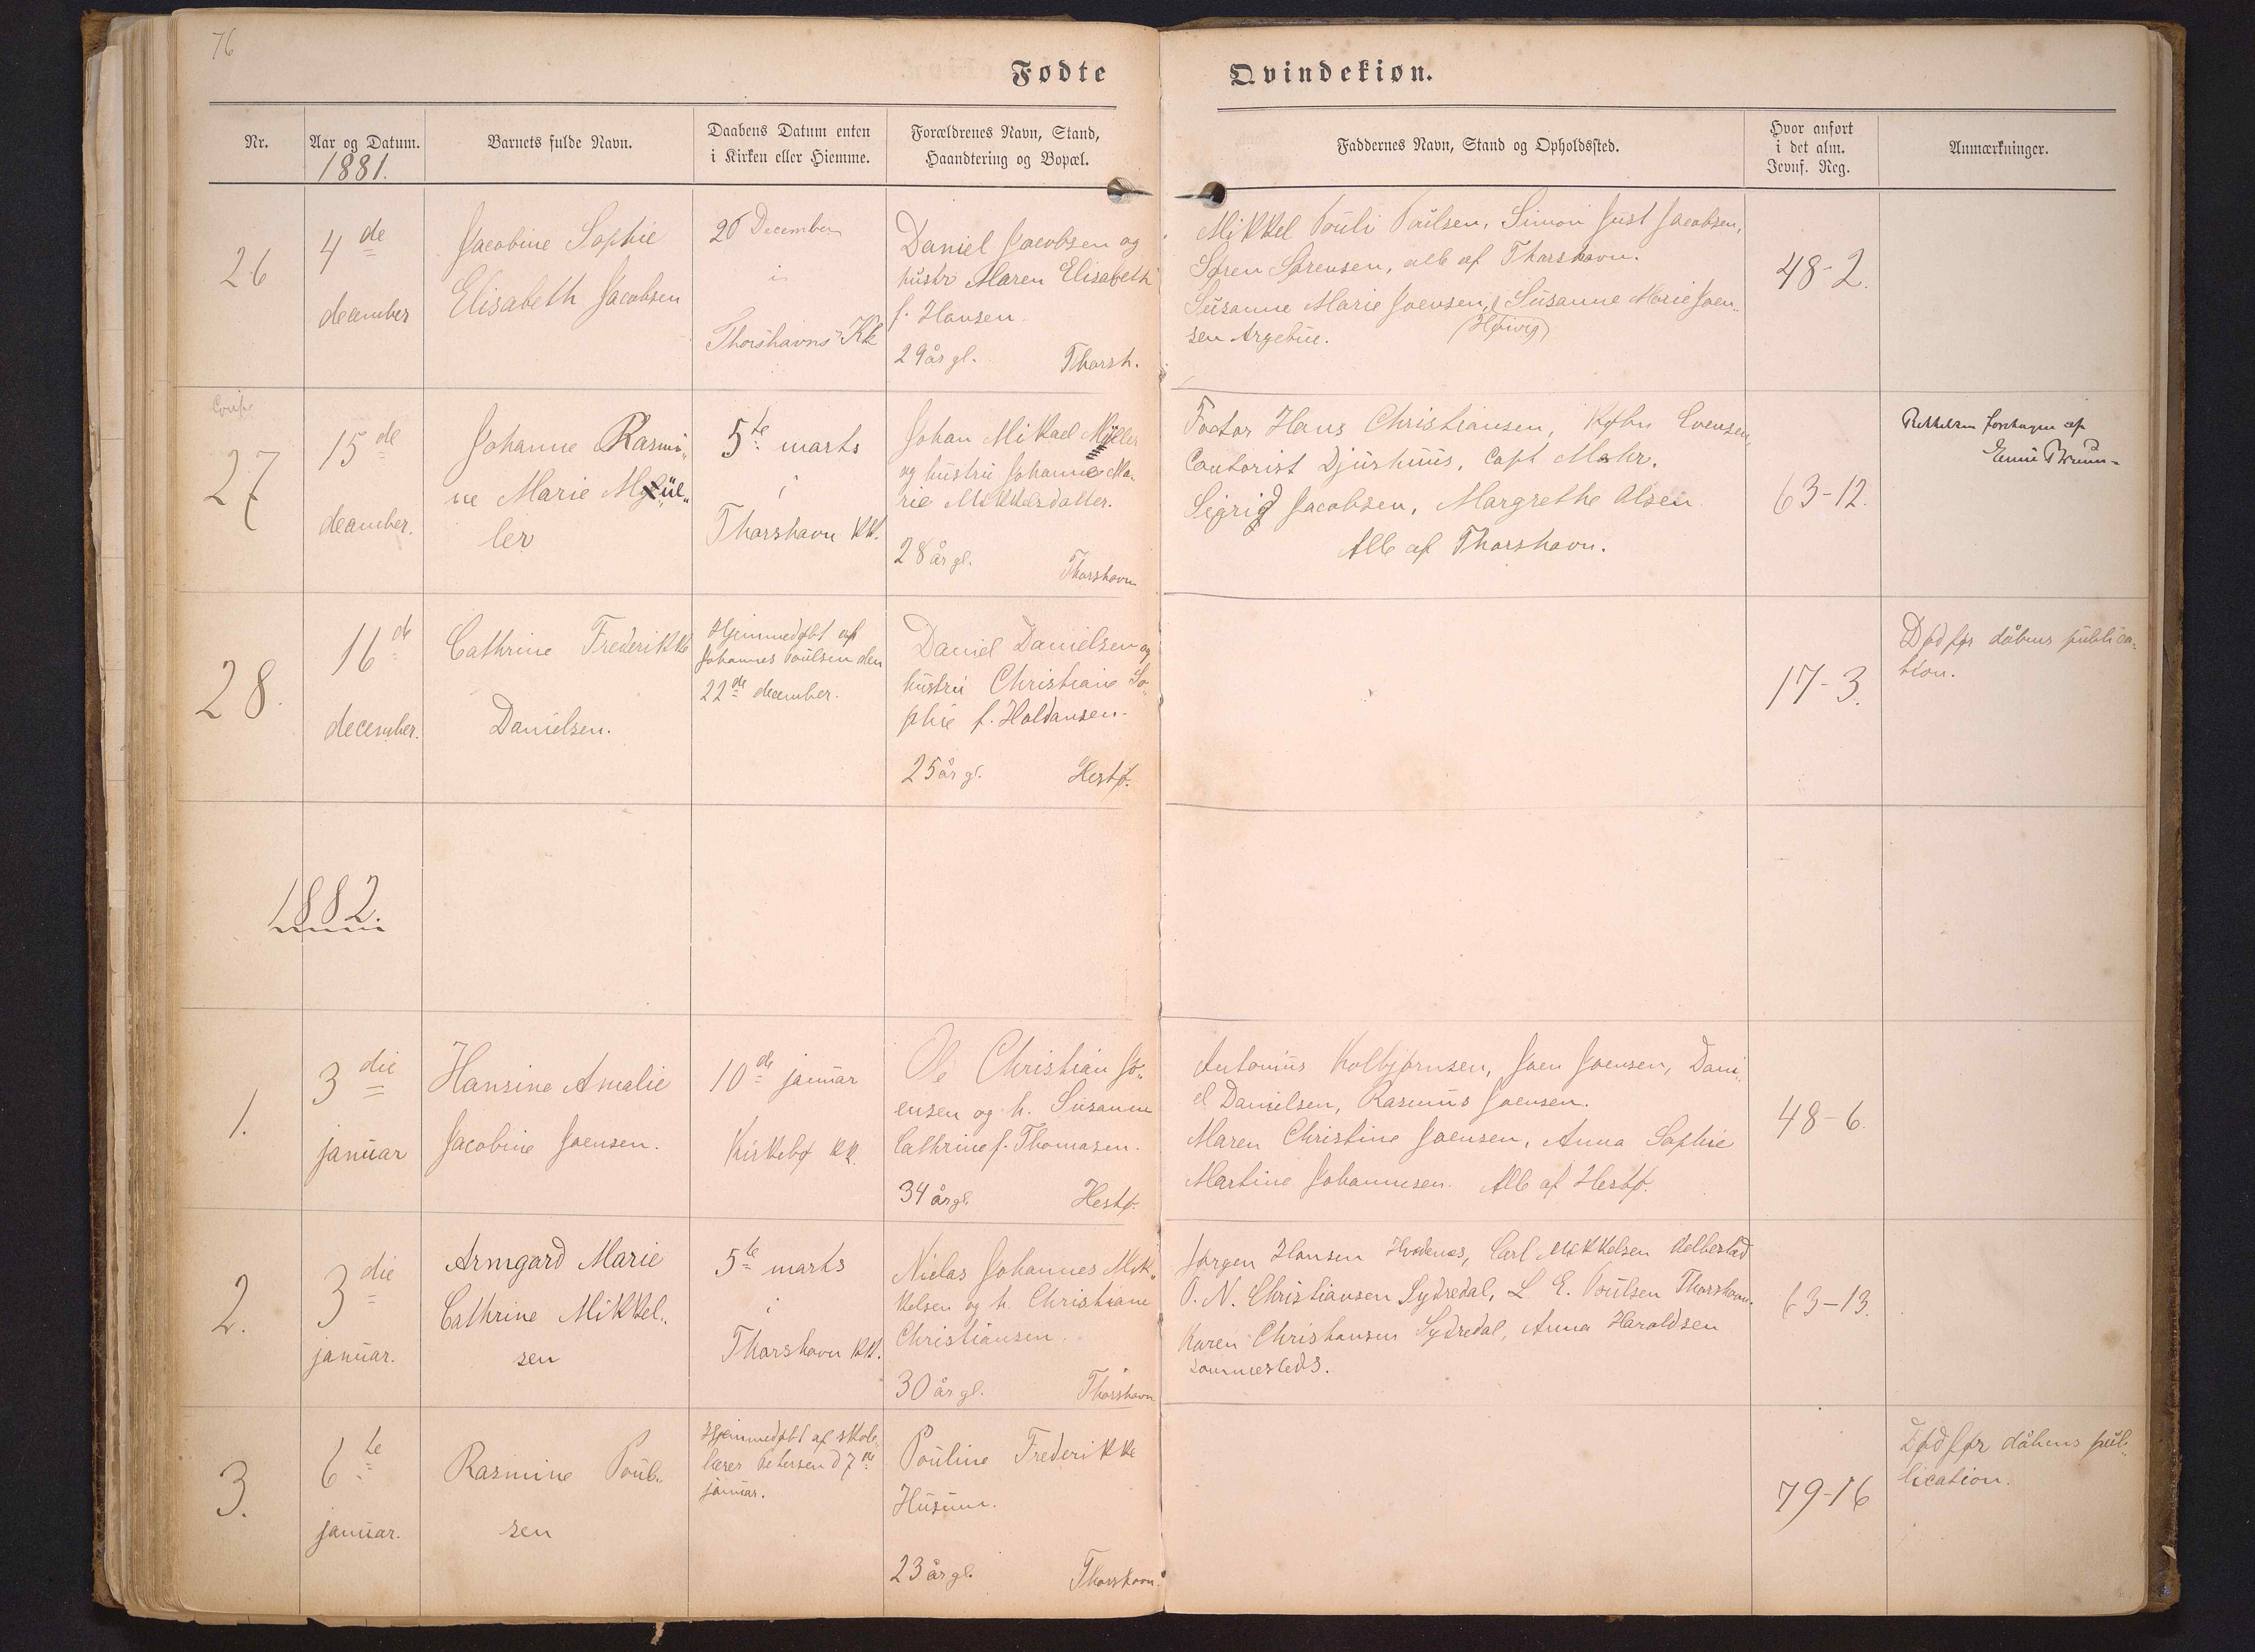 76
Fødte Qvindekiøn.
Nr.
Aar og Datum.
1881.
Barnets fulde Navn.
Daabens Datum enten
i Kirken eller Hiemme.
Forældrenes Navn, Stand,
Haandtering og Bopæl.
Faddernes Navn, Stand og Opholdssted.
Hvor anført
i det alm.
Jevnf. Reg.
Anmærkninger.
26
4 de
december
Jacobine Sophie
Elisabeth Jacobsen
26 December
i
Thorshavns Kk
Daniel Jacobsen og
hustro Maren Elisabeth
f. Hansen.
29 år gl. Thorsh.
Mikkel Pouli Poulsen, Simon Just Jacobsen,
Søren Sørensen, alle af Thorshavn.
Susanne Marie Joensen, Susanne Marie Joen„
(Høivig)
sen Argebue.
48-2.
27
15 de
december.
Johanne Rasmi„
ne Marie Mül„
ler
5te marts
i
Thorshavn kk.
Johan Mikael Müller
og hustru Johanne Ma„
rie Mikkelsdatter.
28 år gl. Thorshavn
Factor Hans Christiansen, Køhn Evensen,
Contorist Djurhuus, Capt Mohr.
Sigrid Jacobsen, Margrethe Olsen.
Alle af Thorshavn.
63-12.
Rettelsen foretagen af
28.
16 de
december.
Cathrine Frederikke
Danielsen.
Hjemmedøbt af
Johannes Poulsen den
22de december.
Daniel Danielsen og
hustru Christiane So„
phie f. Holdansen.
25 år gl. Hestø.
17-3.
Død før dåbens publica„
tion.
1882.
1.
3 die
januar
Hansine Amalie
Jacobine Joensen.
10de januar
Kirkebø kk.
Ole Christian Jo„
ensen og h. Susanne
Cathrine f. Thomasen.
34 år gl. Hestø.
Antonius Kolbjørnsen, Joen Joensen, Dani„
el Danielsen, Rasmus Joensen.
Maren Christine Joensen, Anna Sophie
Martine Johannesen. Alle af Hestø.
48-6.
2.
3 die
januar.
Armgard Marie
Cathrine Mikkel„
sen
5te marts
i
Thorshavn kk.
Niclas Johannes Mik„
kelsen og h. Christiane
Christiansen.
30 år gl. Thorshavn
Jørgen Hansen Hvidenæs, Carl Mikkelsen Velbestad
O. N. Christiansen Sydredal, L. E. Poulsen Thorshavn.
Karen Christiansen Sydredal, Anna Haraldsen
sammesteds.
63-13.
3.
6 te
januar.
Rasmine Poul„
sen
Hjemmedøbt af skole„
lærer Petersen d 7de
januar.
Pouline Frederikke
Husum.
23 år gl. Thorshavn.
79-16
Død før dåbens pub„
lication.